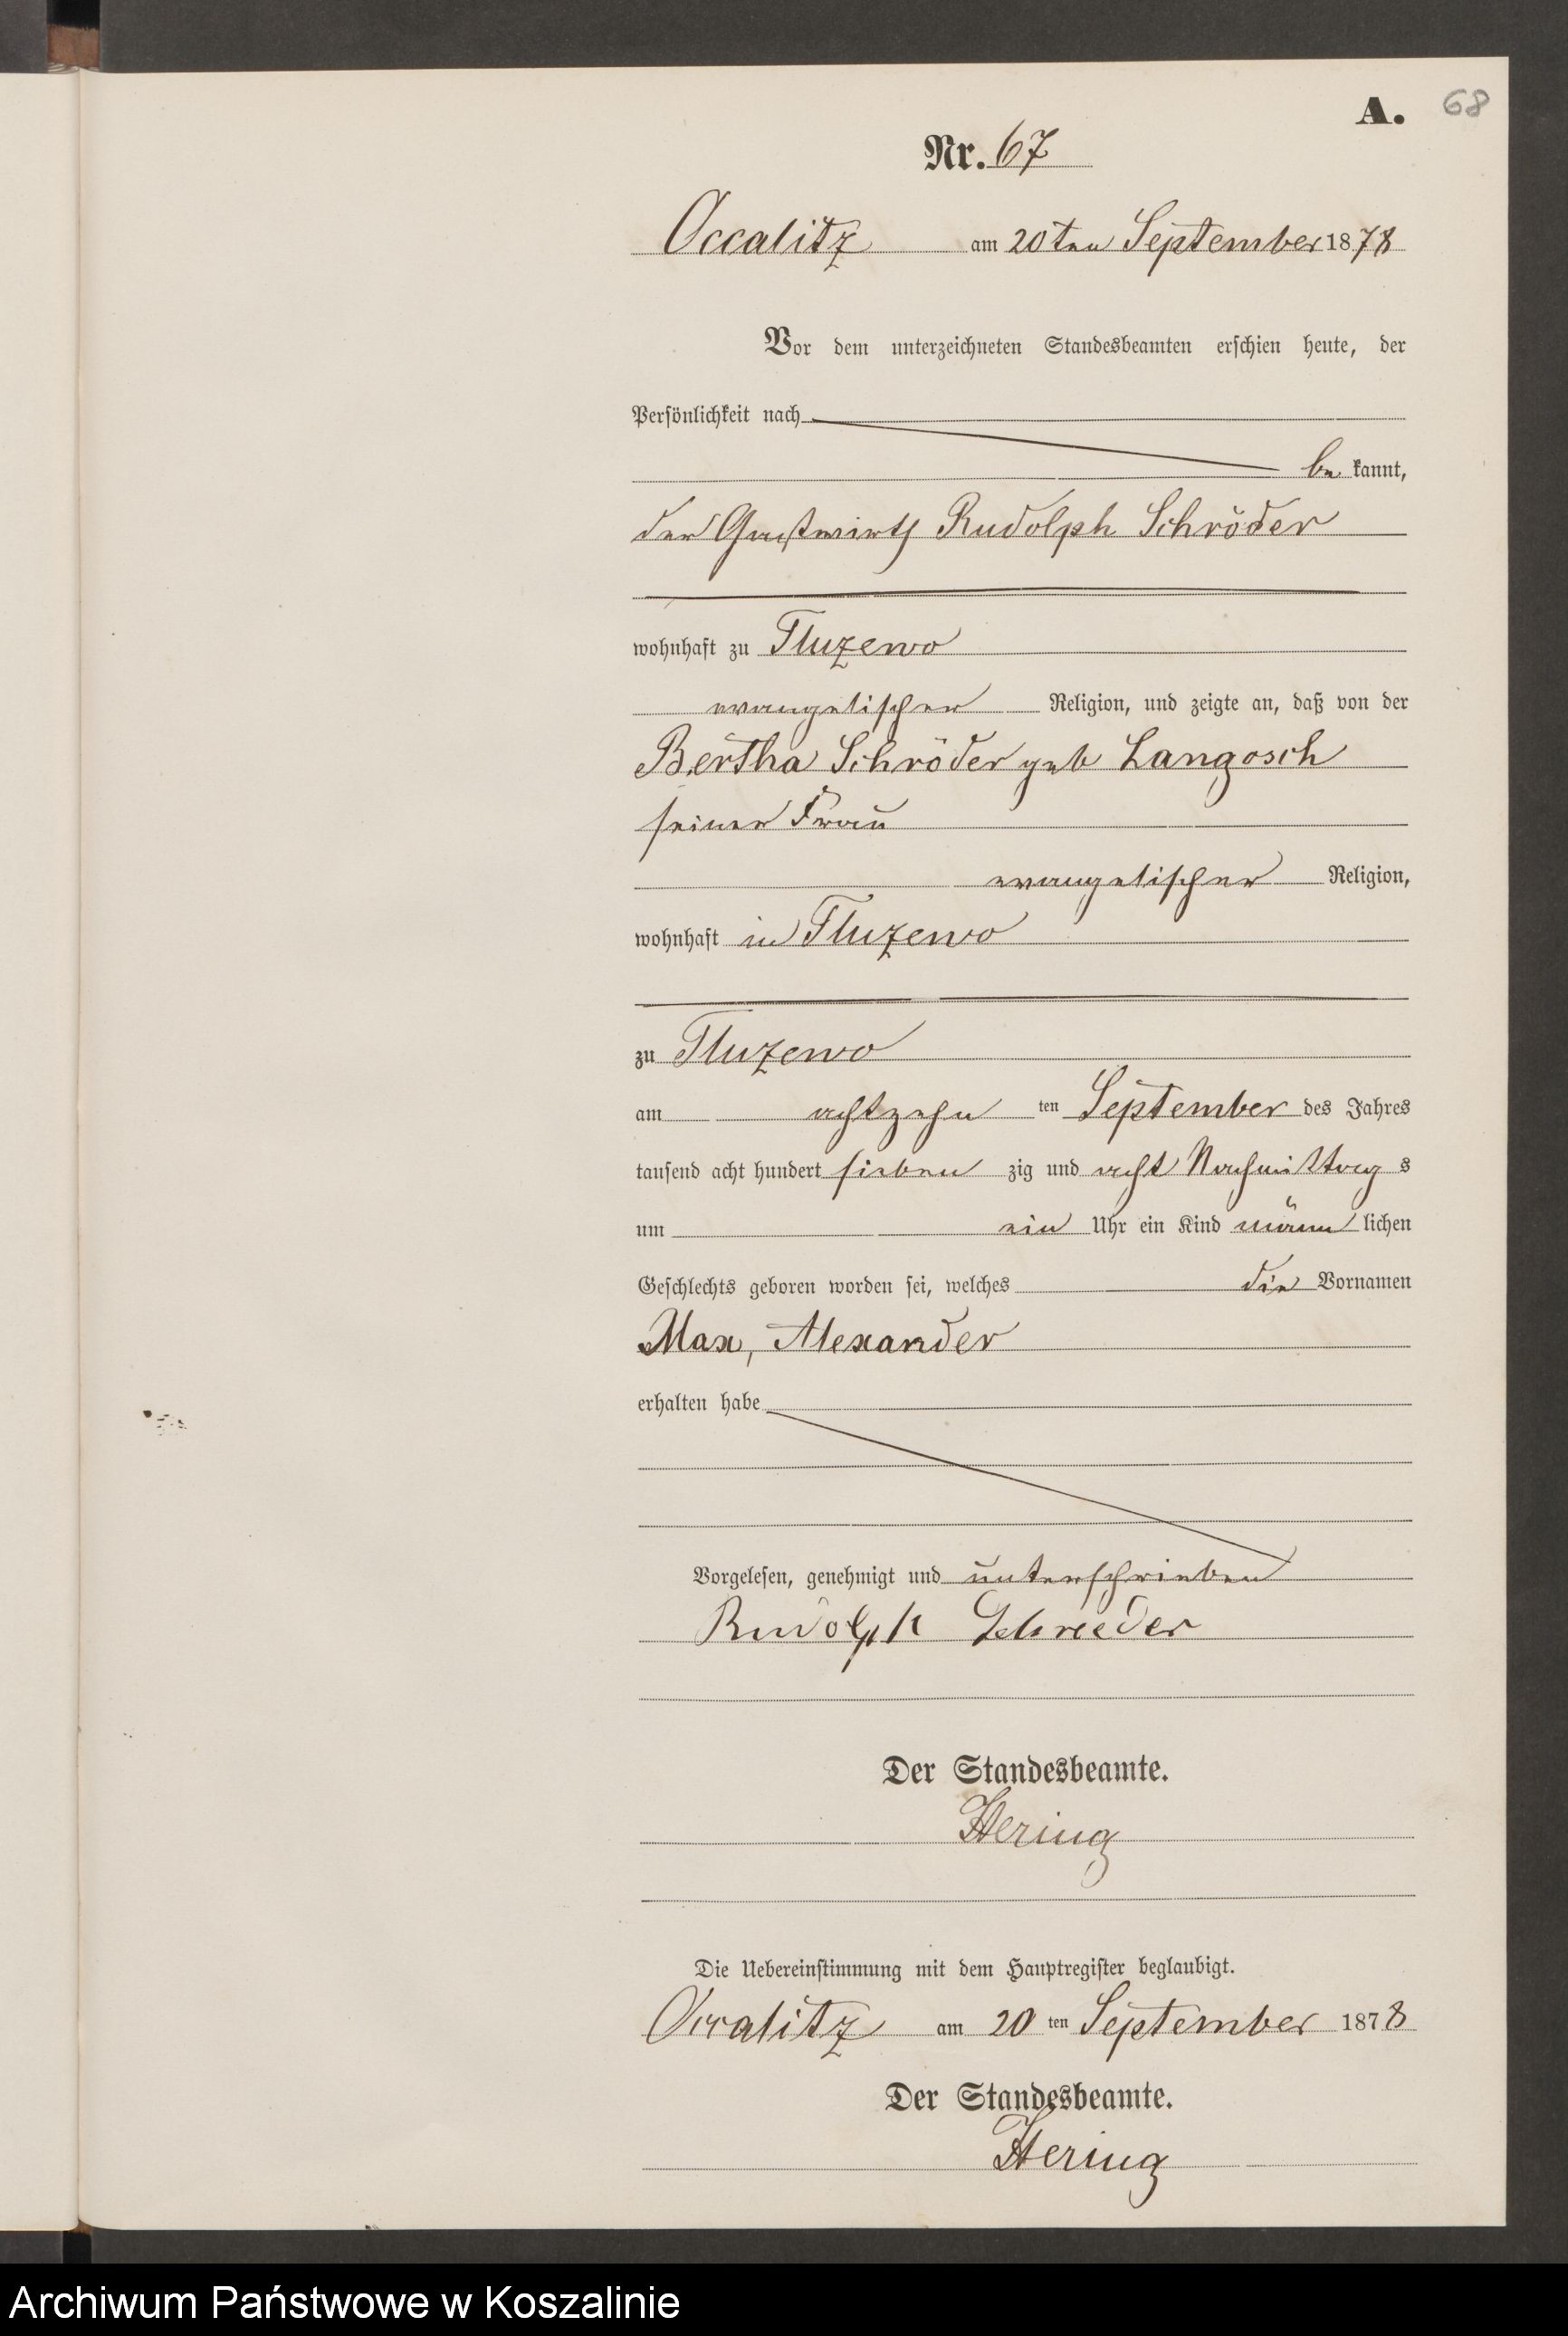 A. 68
Nr. 67
Occalitz am 20ten September 1878
Vor dem unterzeichneten Standesbeamten erschien heute, der
Persönlichkeit nach
be kannt,
der Gastwirth Rudolph Schröder
wohnhaft zu Tluzewo
evangelischer Religion, und zeigte an, daß von der
Bertha Schröder geb Langosch
seiner Frau
evangelischer Religion,
wohnhaft in Tluzewo
zu Tluzewo
am achtzehn ten September des Jahres
tausend acht hundert sieben zig und acht Nachmittag s
um ein Uhr ein Kind männ lichen
Geschlechts geboren worden sei, welches die Vornamen
Max, Alexander
erhalten habe
Vorgelesen, genehmigt und unterschrieben
Rudolph Schroeder
Der Standesbeamte.
Hering
Die Uebereinstimmung mit dem Hauptregister beglaubigt.
Occalitz am 20 ten September 1878
Der Standesbeamte.
Hering
Archiwum Państwowe w Koszalinie